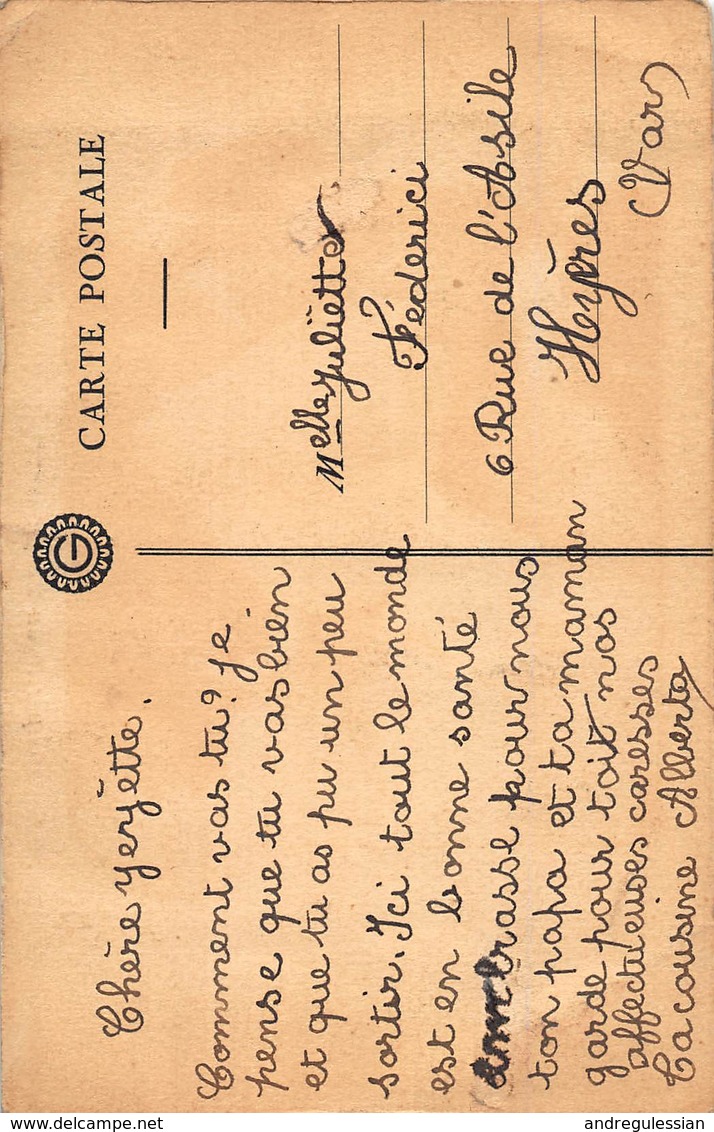 CARTE POSTALE
G
Chère yeryette.
Comment vas tu? je
pense que tu vas bien.
et que tu as pu un peu
sortir. Ici tout le monde
est en bonne santé
embrasse pour nous
ton papa et ta maman
garde pour toit nos
affectueuses caresses
Ta cousine Alberta
Melle Juliette
Féderici
6 Rue de l'Asile
Hyères
(Var)
delcampe.net
andregulessian